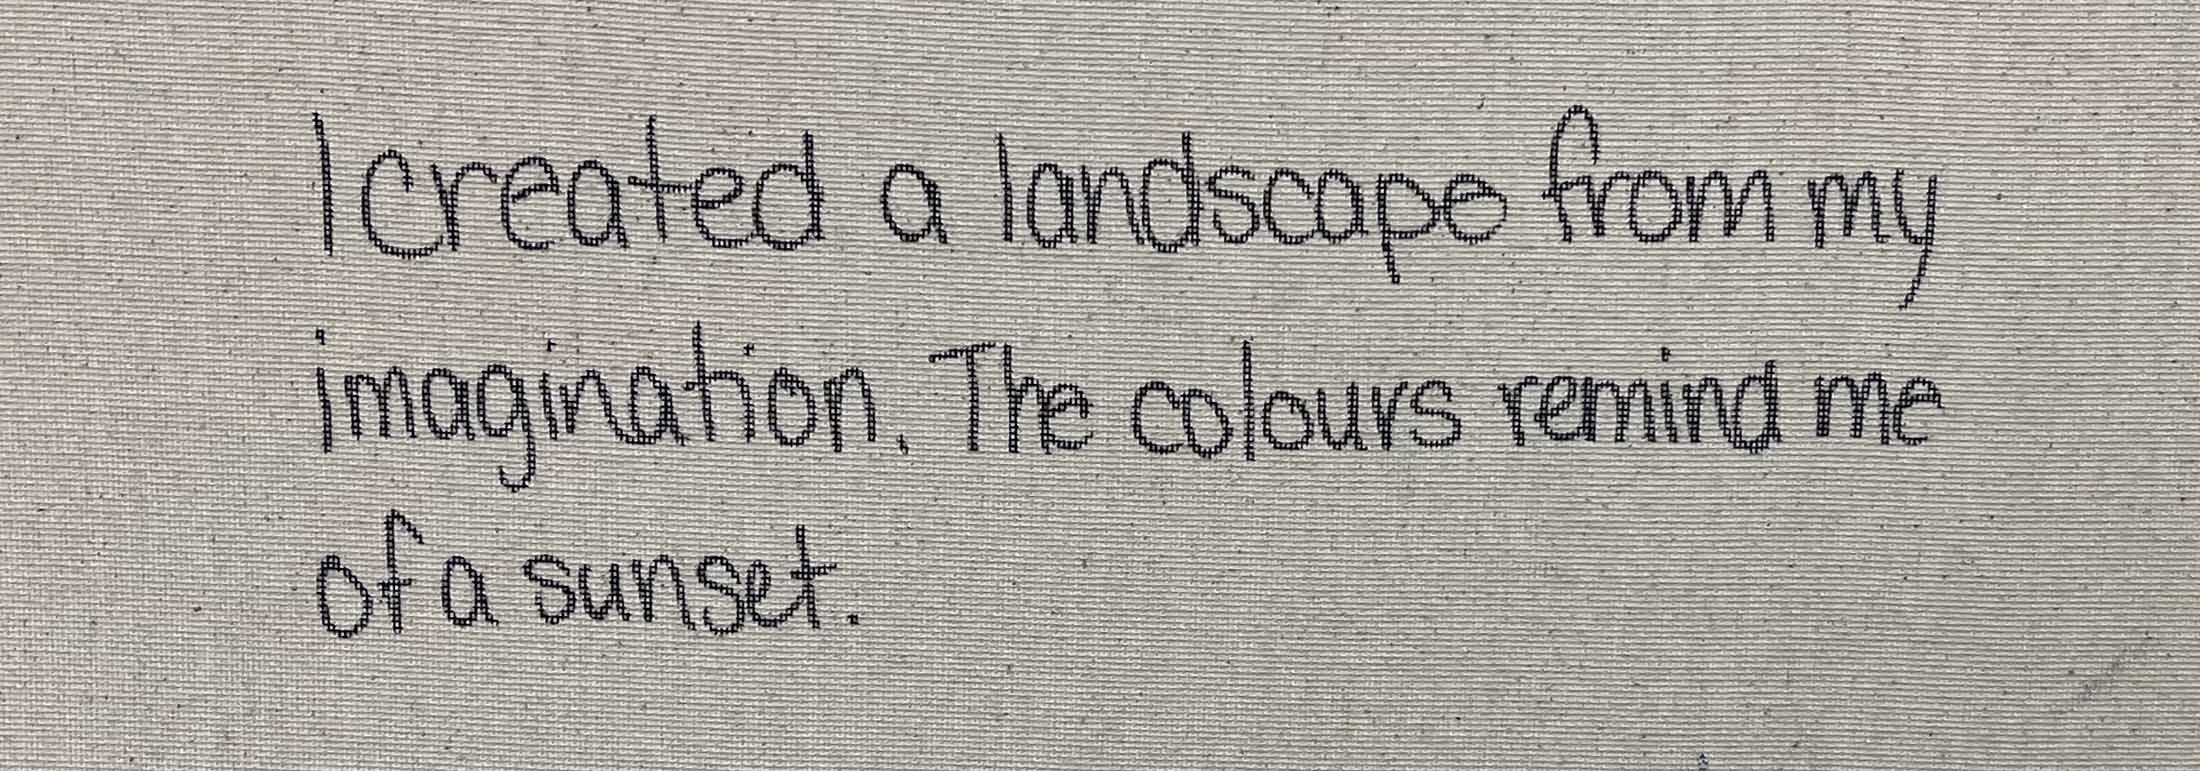 I created a landscape from my
imagination. The colours remind me
of a sunset.